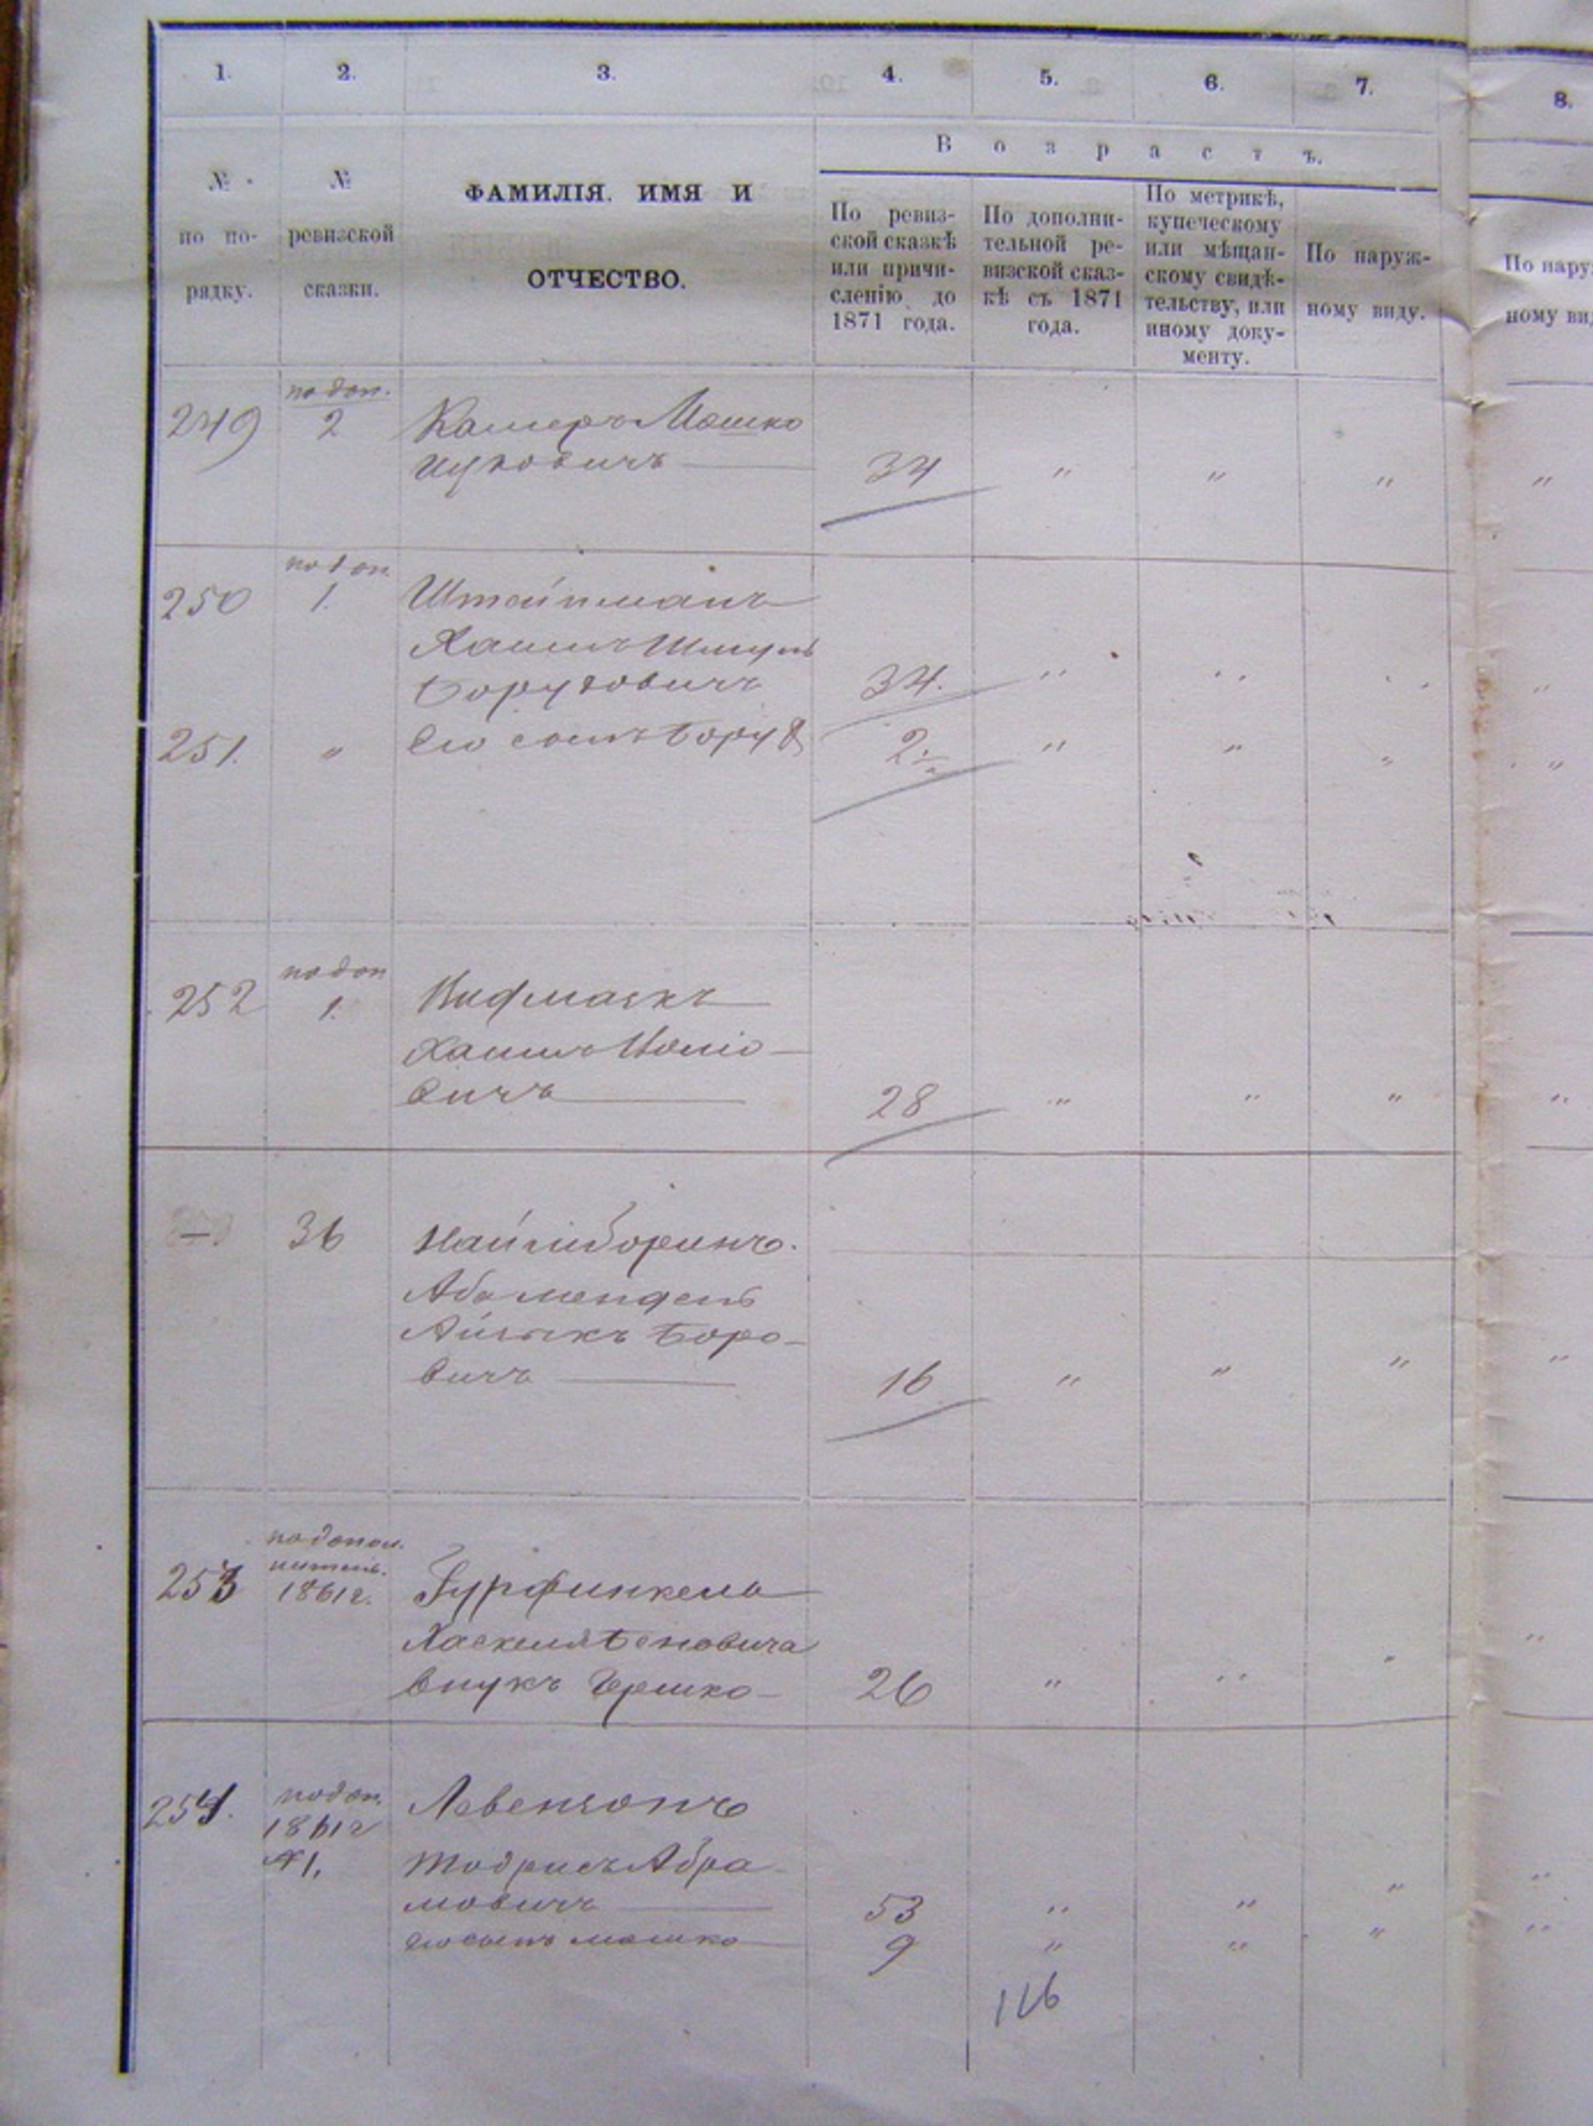 1. 2. 3. 4. 5. 6. 7. 8.
Возрастъ.
№ по по-рядку.
№ ревизской сказки.
ФАМИЛІЯ. ИМЯ И
ОТЧЕСТВО.
По ревиз-
ской сказкѣ
или причи-
сленію до
1871 года.
По дополни-
тельной ре-
визской сказ-
кѣ съ 1871
года.
По метрикѣ,
купеческому
или мѣщан-
скому свидѣ-
тельству, или
иному доку-
менту.
По наруж-
ному виду.
По нару
ному ви
по доп.
249 2 Мошко
Ицковичъ 34 " " " "
по доп.
250 1. Штейнманъ
Хаимъ Шмуль
Боруховичъ 34. " " " "
251. " Его сынъ Борух 2 " " " "
по доп
252 1.
Хаимъ
вичъ 28 " " " "
— 36
Аба Мендель
Айзыкъ Боро-
вичъ 16 " " " "
по допол.
нитель.
253 1861 г. Гурфинкель
Хаскеля Беновича
внукъ Гершко 26 " " " "
по доп.
254. 1861 г Левензонъ
№ 1. Тодрисъ Абра
мовичъ 53 " " " "
Его сынъ Мошко 9 " " " "
116